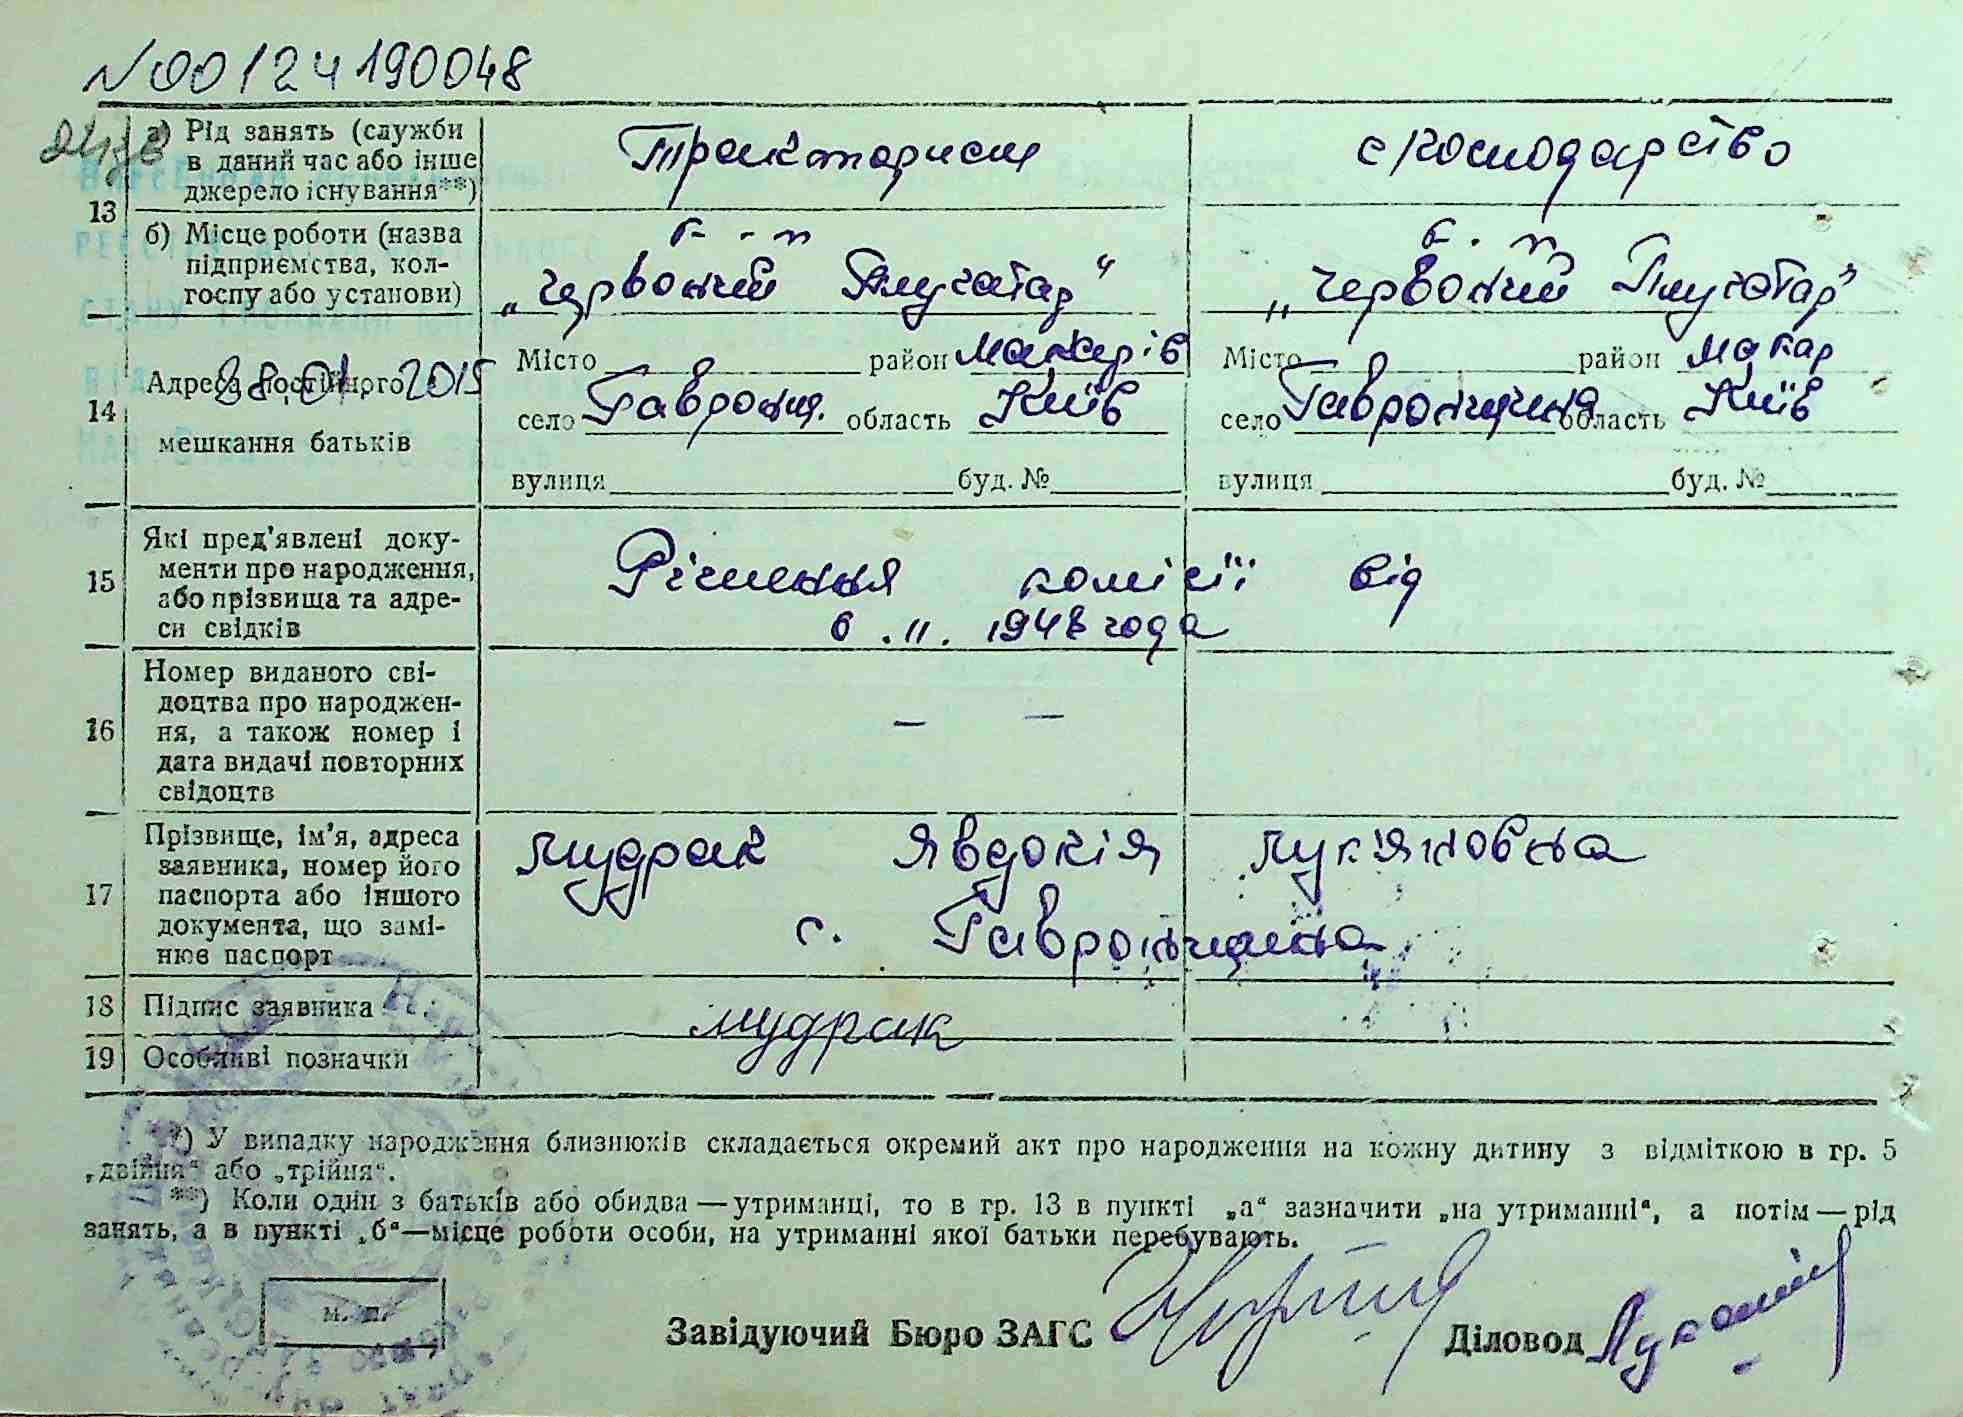 N00124190048
13 а) Рід занять (служби в даний час або інше джерело існування**)
Тракторист
с господарство
б) Місце роботи (назва підприємства, колгоспу або установи)
к-п
„Червоний Плугатар"
к-п
„Червоний Плугатар"
28.01.2015
14 Адреса постійного мешкання батьків
Місто район Макарів
село Гавронщ. область Київ
вулиця буд. №
Місто район Макар
село Гавронщина область Київ
вулиця буд. №
15 Які пред'явлені документи про народження, або прізвища та адреси свідків
Рішення комісії від
6.11.1948 года
16 Номер виданого свідоцтва про народження, а також номер і дата видачі повторних свідоцтв
— —
17 Прізвище, ім'я, адреса заявника, номер його паспорта або іншого документа, що замінює паспорт
Мудрак Явдокія Лук'яновна
с. Гавронщина
18 Підпис заявника
Мудрак
19 Особливі позначки
*) У випадку народження близнюків складається окремий акт про народження на кожну дитину з відміткою в гр. 5
„двійня“ або „трійня“.
**) Коли один з батьків або обидва—утриманці, то в гр. 13 в пункті „а“ зазначити „на утриманні“, а потім—рід
занять, а в пункті „б“—місце роботи особи, на утриманні якої батьки перебувають.
М. П.
Завідуючий Бюро ЗАГС
Діловод